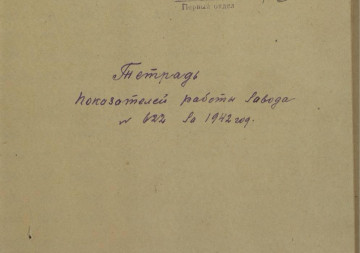 Первый отдел
Тетрадь
показателей работы завода
№ 622 за 1942 год.